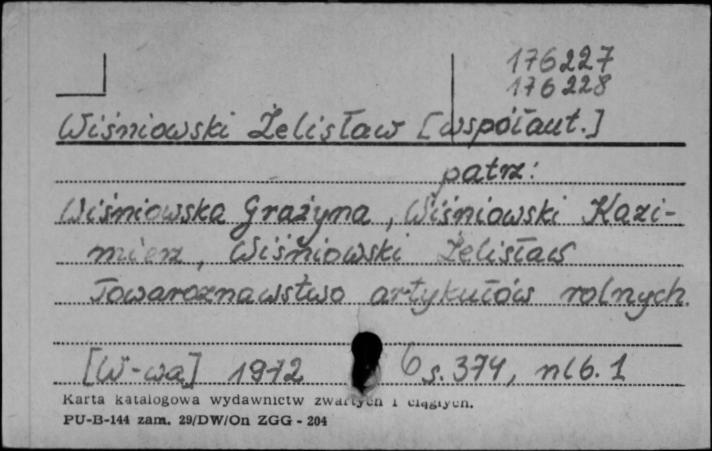 176227
176228
Wiśniowski Żelisław [współaut.]
patrz:
Wiśniowska Grażyna, Wiśniowski Kazi-
mierz, Wiśniowski Żelisław
Towaroznawstwo artykułów rolnych.
[W-wa] 1972 s. 374, nlb. 1
Karta katalogowa wydawnictw zwartych i ciągłych.
PU-B-144 zam. 29/DW/On ZGG - 204